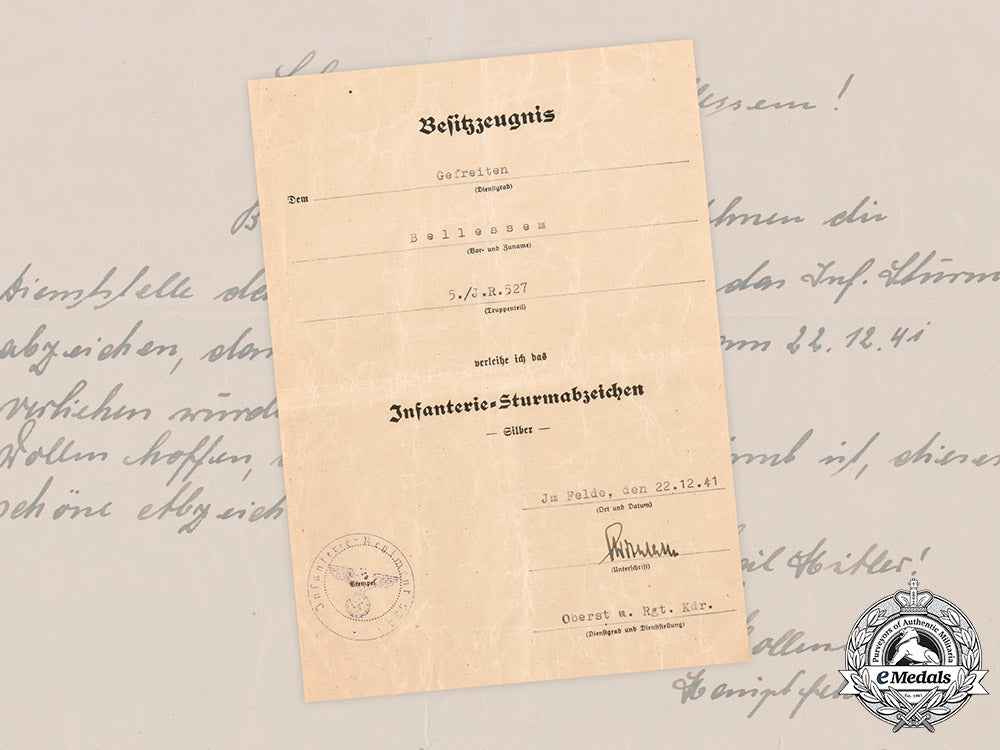 Besitzzeugnis
Dem Gefreiten
(Dienstgrad)
Bellessem
(Vor- und Zuname)
5./J.R.527
(Truppenteil)
verleihe ich das
Infanterie-Sturmabzeichen
— Silber —
Jm Felde, den 22.12.41
(Ort und Datum)
(Unterschrift)
Oberst u. Rgt. Kdr.
(Dienstgrad und Dienststellung)
Infanterie-Regiment
Stempel
lessem!
Ihnen die
Dienststelle das Inf. Sturm
abzeichen, am 22.12.41
verliehen wurde
Wollen hoffen, ist, dieses
schöne Abzeich
eil Hitler!
Purveyors of Authentic Militaria
eMedals